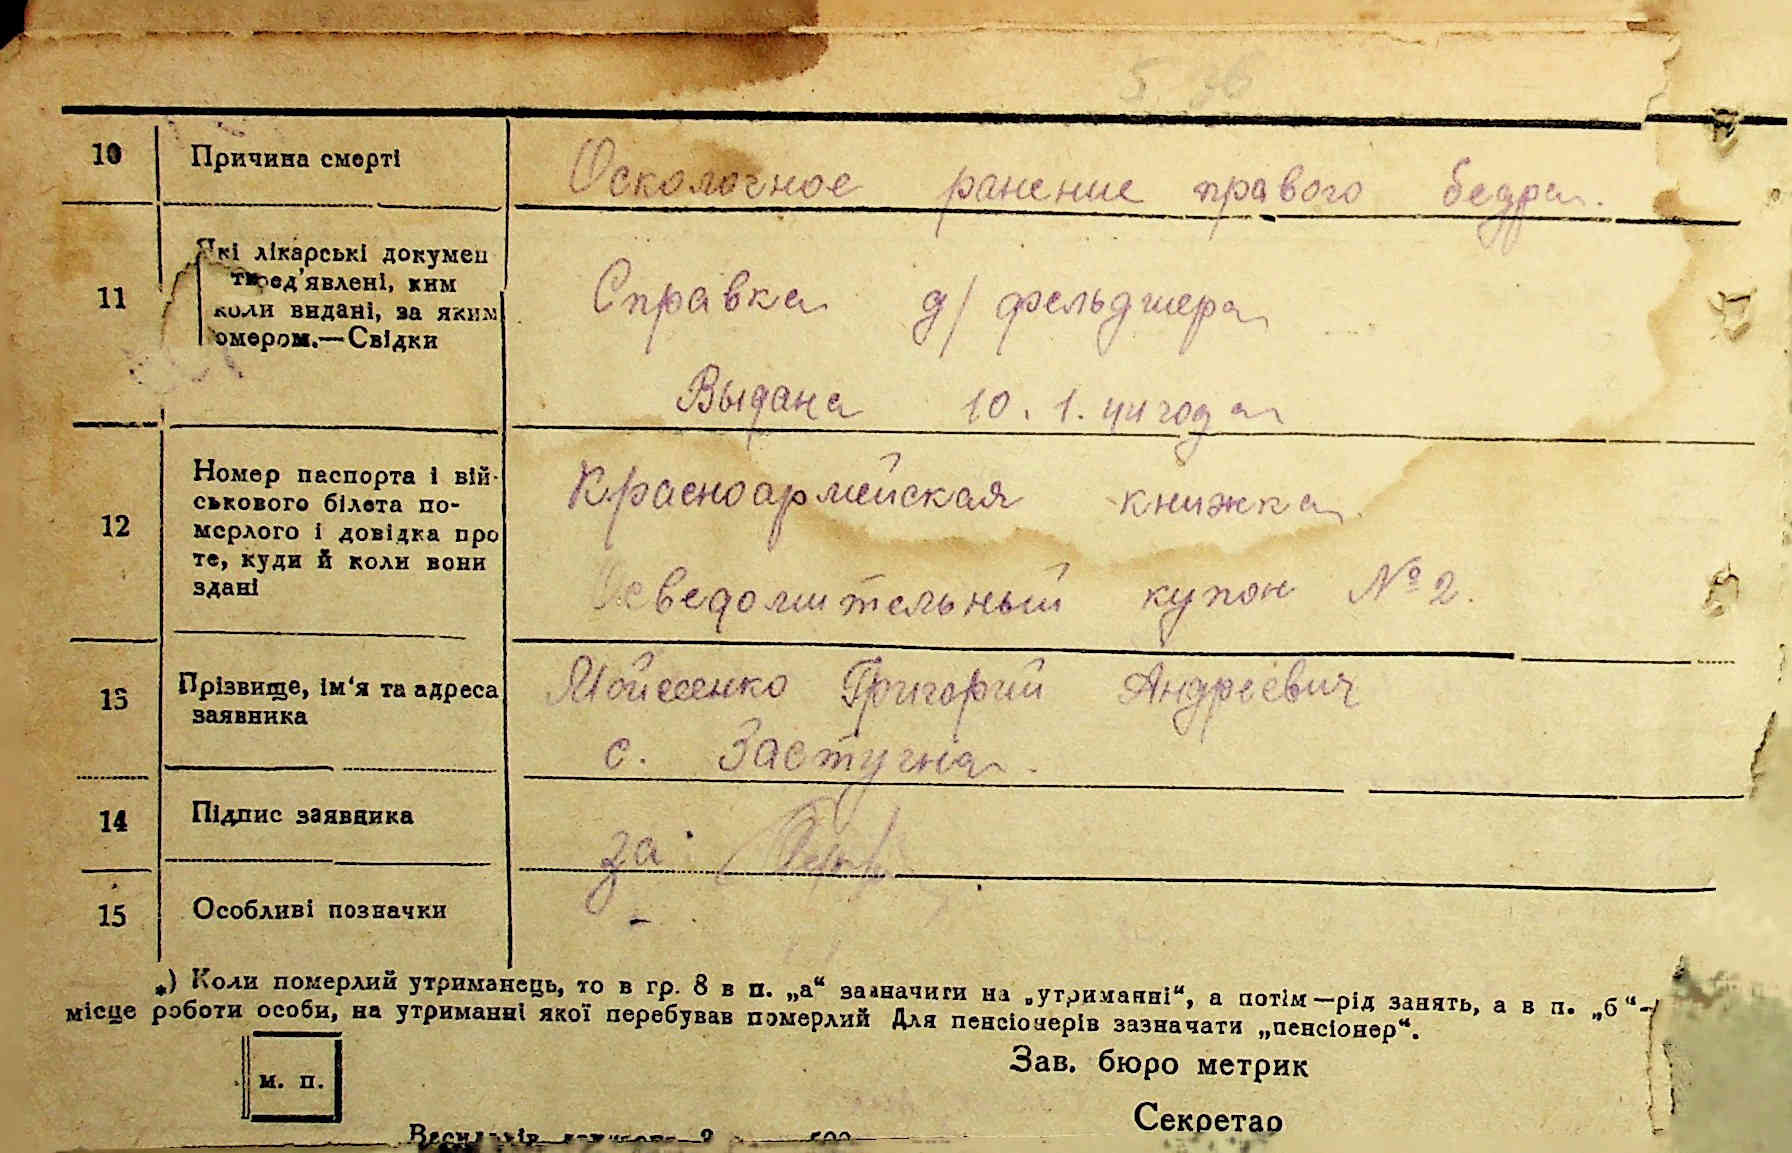 10 Причина смерті Осколочное ранение правого бедра.
11 Які лікарські докумен
ти пред'явлені, ким
коли видані, за яким
номером.—Свідки
Справка д/ фельдшера
Выдана 10. 1. 44 года
12 Номер паспорта і вій-
ськового білета по-
мерлого і довідка про
те, куди й коли вони
здані
Красноармейская книжка
Осведомительный купон № 2.
13 Прізвище, ім'я та адреса
заявника
Мойсеенко Григорий Андреевич
с. Застугна.
14 Підпис заявника за
15 Особливі позначки -
*) Коли померлий утриманець, то в гр. 8 в п. „а“ зазначити на „утриманні“, а потім—рід занять, а в п. „б“—
місце роботи особи, на утриманні якої перебував померлий Для пенсіонерів зазначати „пенсіонер“.
Зав. бюро метрик
м. п.
Секретар